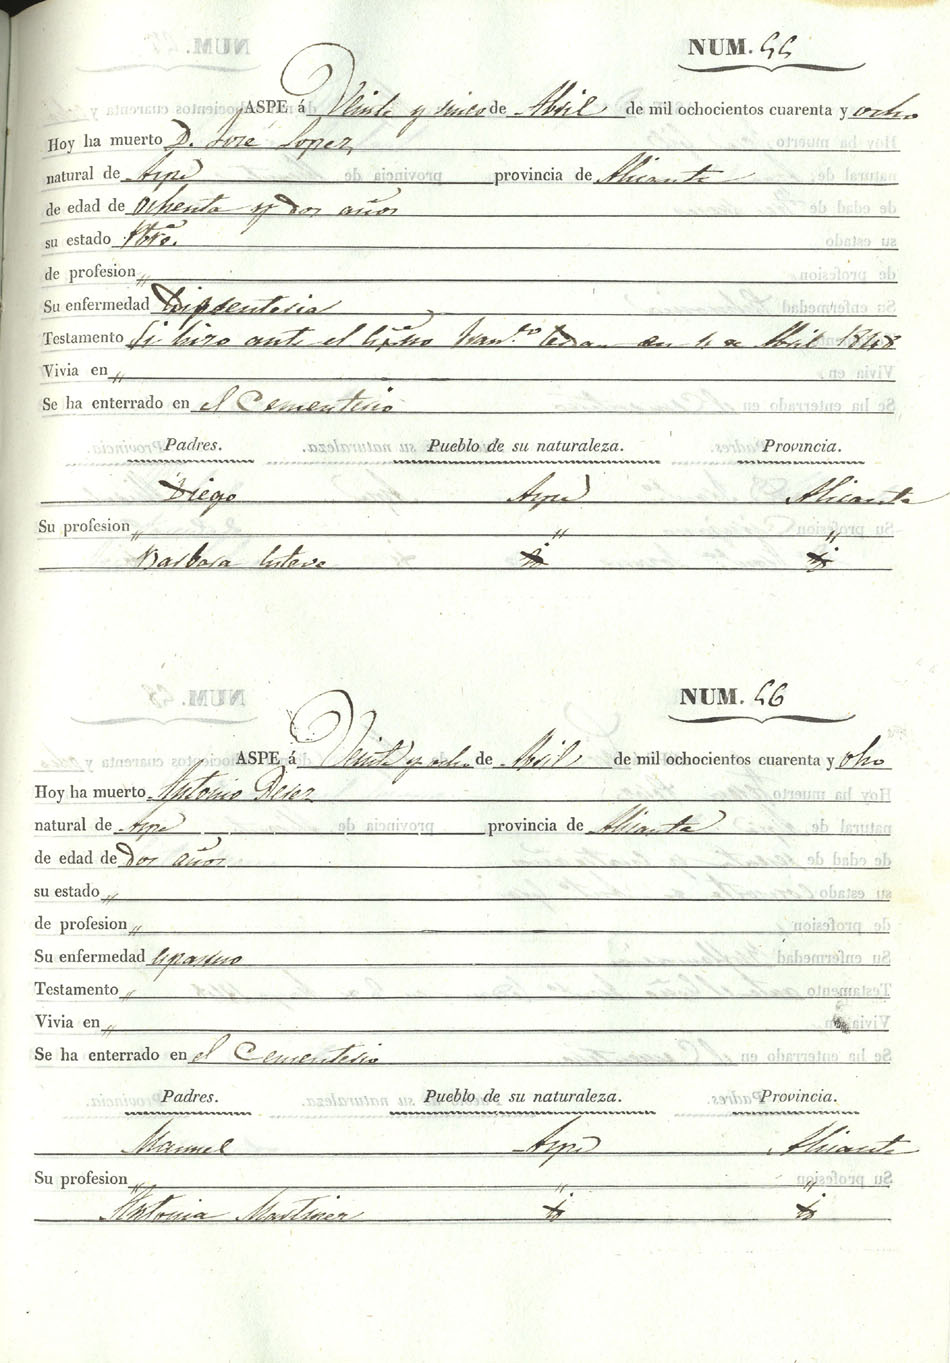 NUM. 55
ASPE á Veinte y cinco de Abril de mil ochocientos cuarenta y ocho
Hoy ha muerto D. José Lopez
natural de Aspe provincia de Alicante
de edad de ochenta y dos años
su estado
de profesion „
Su enfermedad Disenteria
Testamento Si hizo ante el en 4 de Abril 1848
Vivia en „
Se ha enterrado en el Cementerio
Padres. Pueblo de su naturaleza. Provincia.
Diego Aspe Alicante
Su profesion „ „ „
Barbara Esteve id id
NUM. 56
ASPE á Veinte y ocho de Abril de mil ochocientos cuarenta y ocho
Hoy ha muerto Antonio Perez
natural de Aspe provincia de Alicante
de edad de Dos años
su estado „
de profesion „
Su enfermedad Espasmo
Testamento „
Vivia en „
Se ha enterrado en el Cementerio
Padres. Pueblo de su naturaleza. Provincia.
Manuel Aspe Alicante
Su profesion „ „ „
Antonia Martinez id id